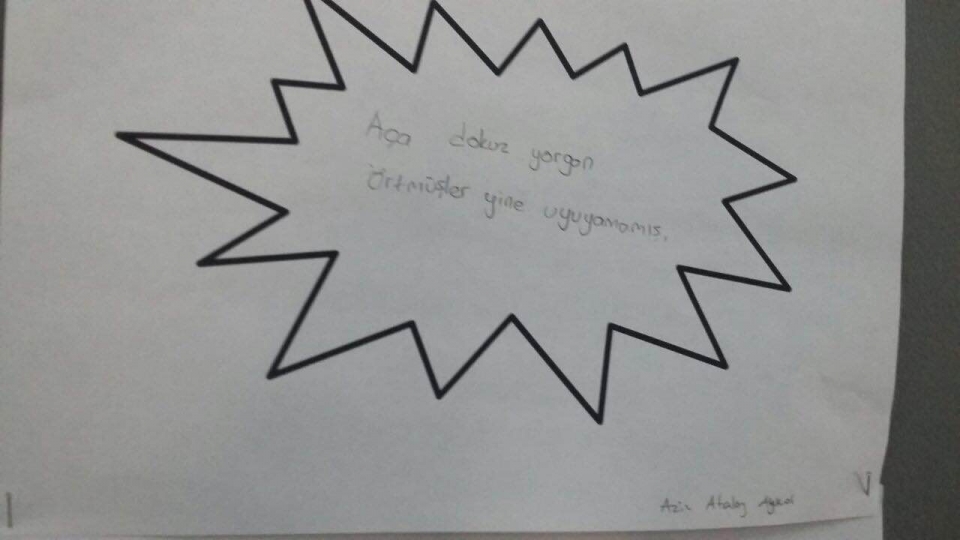 Aça dokuz yorgan
Örtmüşler yine uyuyamamış.
Aziz Atalay